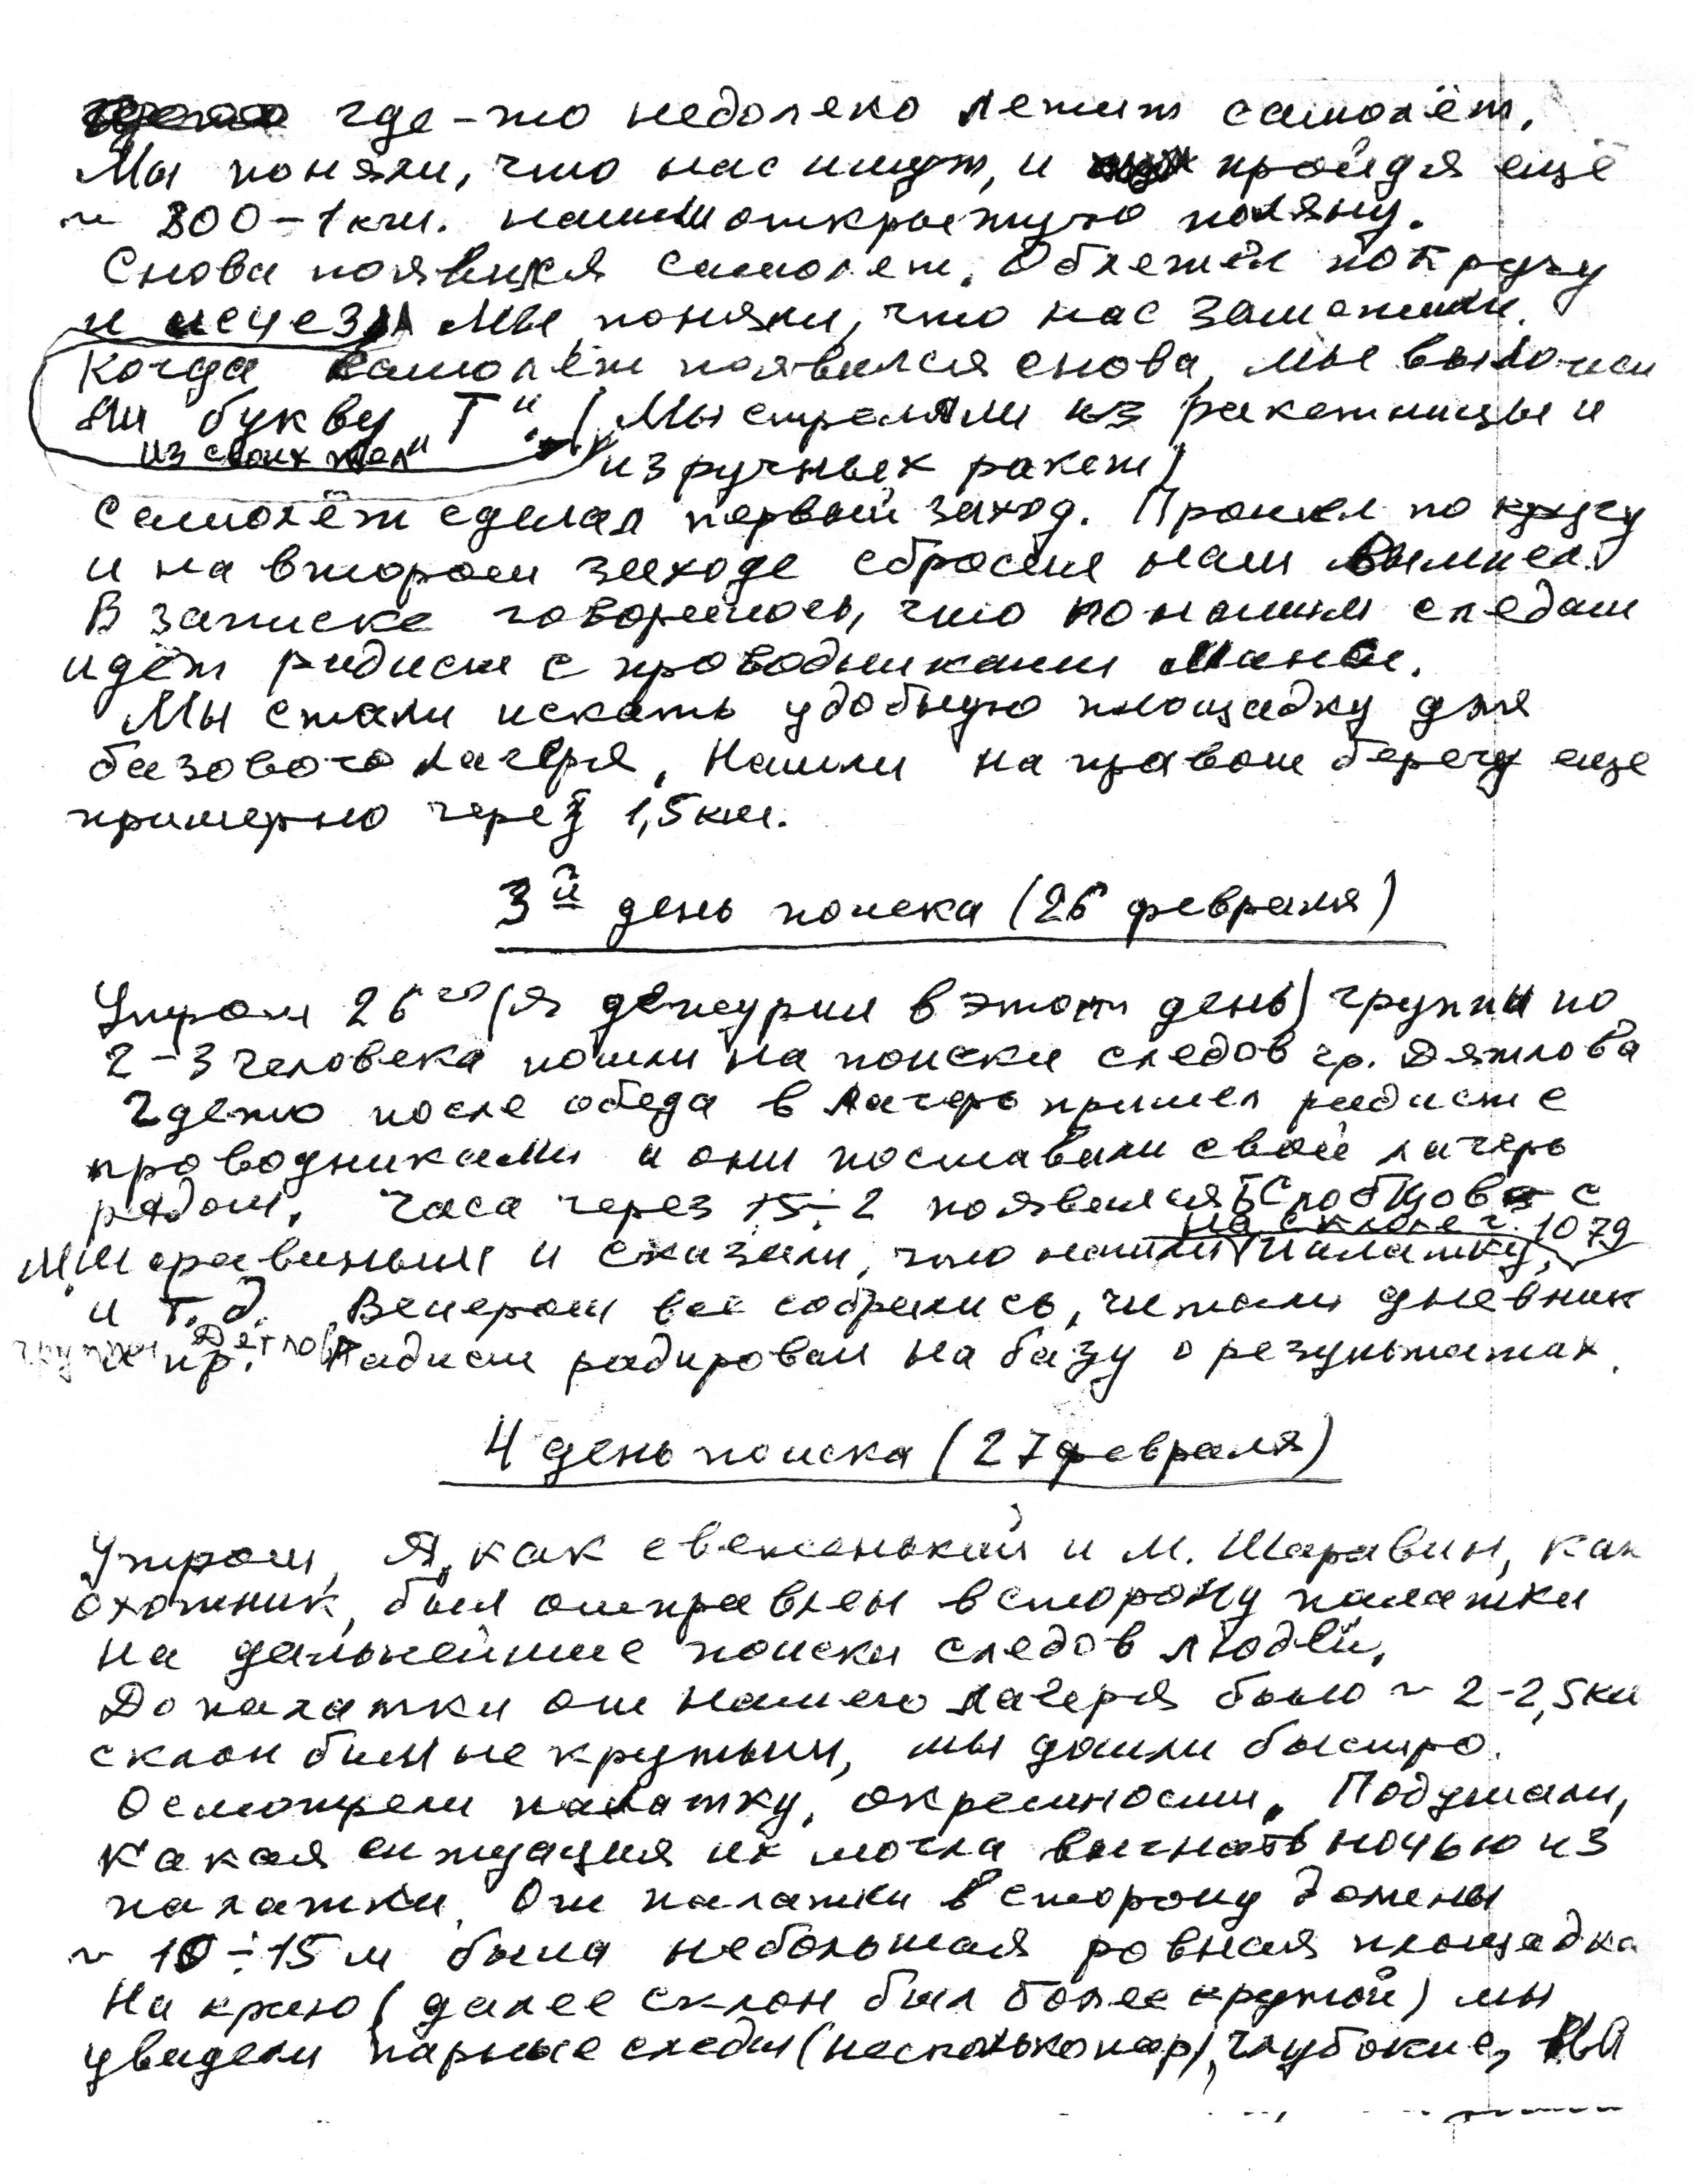 где-то недолеко летит самолёт.
Мы поняли, что нас ищут, и пройдя ещё
~ 800-1км. нашли открытую поляну.
Снова появился самолет. Облетел по кругу
и исчез. Мы поняли, что нас заметили.
Когда самолёт появился снова, мы выложили
букву „Т". (Мы стреляли из ракетницы и
из своих тел"
из ручных ракет)
Самолёт сделал первый заход. Прошел по кругу
и на втором заходе сбросил нам вымпел.
В записке говорилось, что по нашим следам
идёт радист с проводниками Манси.
Мы стали искать удобную площадку для
базового лагеря. Нашли на правом берегу еще
примерно через 1,5км.
3й день поиска (26 февраля)
Утром 26го (я дежурил в этот день) группы по
2-3 человека пошли на поиски следов гр. Дятлова
Где то после обеда в лагерь пришел радист с
проводниками и они поставили свой лагерь
рядом. Часа через 1,5÷2 появился Б Слобцов с
на склоне г. 1079
М. Шаравиным и сказали, что нашли палатку
и т.д. Вечером все собрались, читали дневник
группы Дятлова
и пр. Радист радировал на базу о результатах.
4 день поиска (27 февраля)
Утром, Я, как свеженький и М. Шаравин, как
охотник, был отправлен в сторону палатки
на дальнейшие поиски следов людей.
До палатки от нашего лагеря было ~ 2-2,5км
склон был не крутым, мы дошли быстро.
Осмотрели палатку, окресности. Подумали,
какая ситуация их могла выгнать ночью из
палатки. От палатки в сторону долины
~ 10÷15 м была небольшая ровная площадка
На краю (далее склон был более крутой) мы
увидели парные следы (несколько пар), глубокие, на